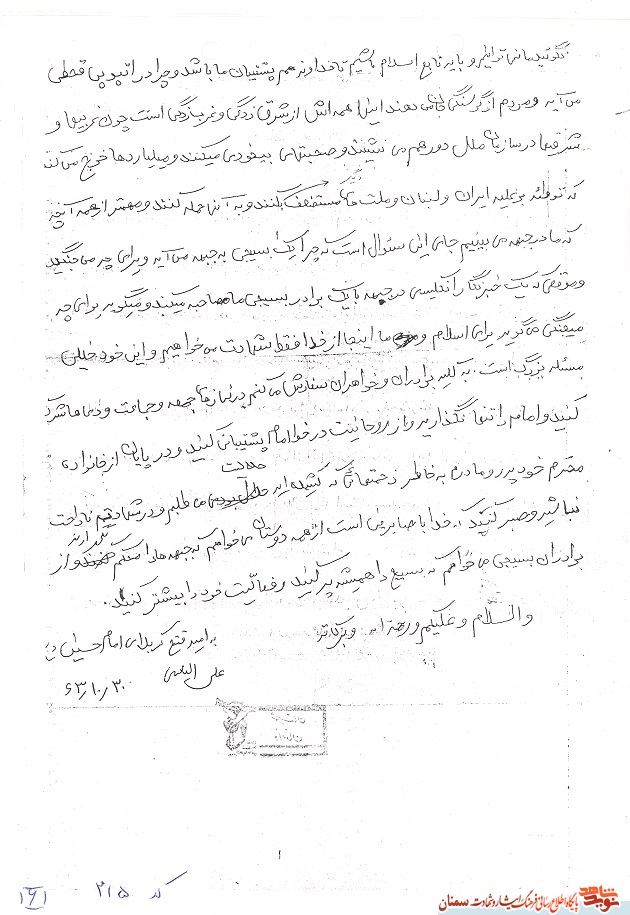 نگوئید ما نمی توانیم و باید تابع اسلام باشیم تا خداوند هم پشتیبان ما باشد و چرا در اتیوپی قحطی
می آید و مردم از گرسنگی جان می دهند اینها همه اش از شرق زدگی و غربزدگی است چون غربیها و
شرقیها در سازمان ملل دور هم می نشینند و صحبتهای بیخودی میکنند و میلیاردها خرج می کنند
که توطئه بر علیه ایران و لبنان و ملت های دیگر مستضعف بکنند و به آنها حمله کنند و مهمتر از همه آنچه
که ما در جبهه می بینیم جای این سئوال است که چرا یک بسیجی به جبهه می آید و برای چه می جنگد
و موقعی که یک خبرنگار انگلیسی در جبهه با یک برادر بسیجی ما مصاحبه میکند و میگوید برای چه
میجنگی می گوید برای اسلام و ما اینجا از خدا فقط شهادت می خواهیم و این خود خیلی
مسئله بزرگ است. به کلیه برادران و خواهران سفارش می کنم در نمازهای جمعه و جماعت و دعاها شرکت
کنید و امام را تنها نگذارید و از روحانیت در خط امام پشتیبانی کنید و در پایان از خانواده
محترم خود پدر و مادرم به خاطر زحمتهائی که کشیده اید حلالیت می طلبم و در شهادتم ناراحت
نباشید و صبر کنید که خدا با صابرین است از همه دوستان می خواهم که جبهه ها را محکم نگهدارند و از
برادران بسیجی می خواهم که بسیج را همیشه پر کنید و فعالیت خود را بیشتر کنید.
والسلام و علیکم و رحمة الله و برکاته
به امید فتح کربلای امام حسین (ع)
علی الیاسی
۶۳/۱۰/۳۰
۱
کد ۲۱۵
۱۶۱
شاهد
نوید
پایگاه اطلاع رسانی فرهنگ ایثار و شهادت سمنان